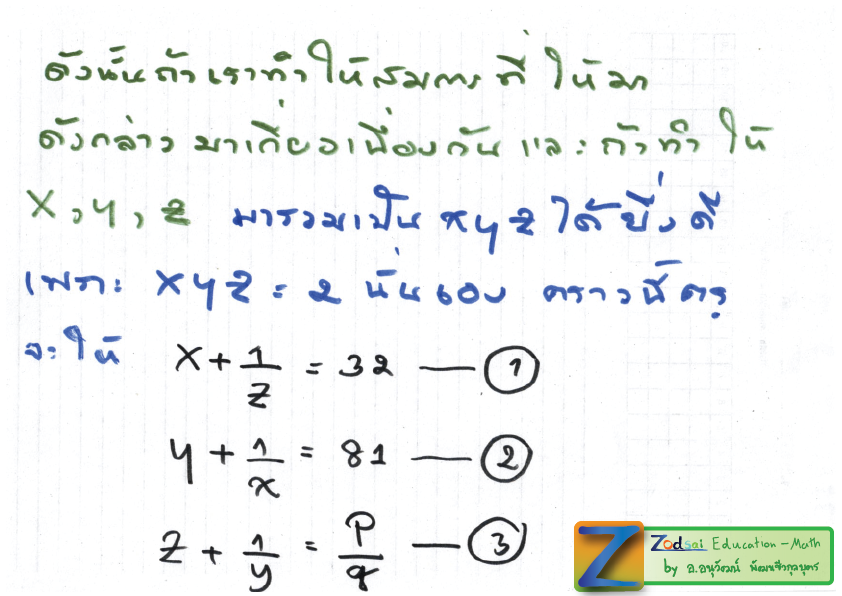 ดังนั้นถ้าเราทำให้สมการที่ให้มา
ดังกล่าว มาเกี่ยวเนื่องกัน และถ้าทำให้
x, y, z มารวมเป็น xyz ได้ยิ่งดี
เพราะ xyz = 2 นั่นเอง คราวนี้ครู
จะให้
x + 1/z = 32 — ①
y + 1/x = 81 — ②
z + 1/y = p/q — ③
Z Zodsai Education - Math
by อ.อนุวัฒน์ พัฒนชีวกุลบุตร